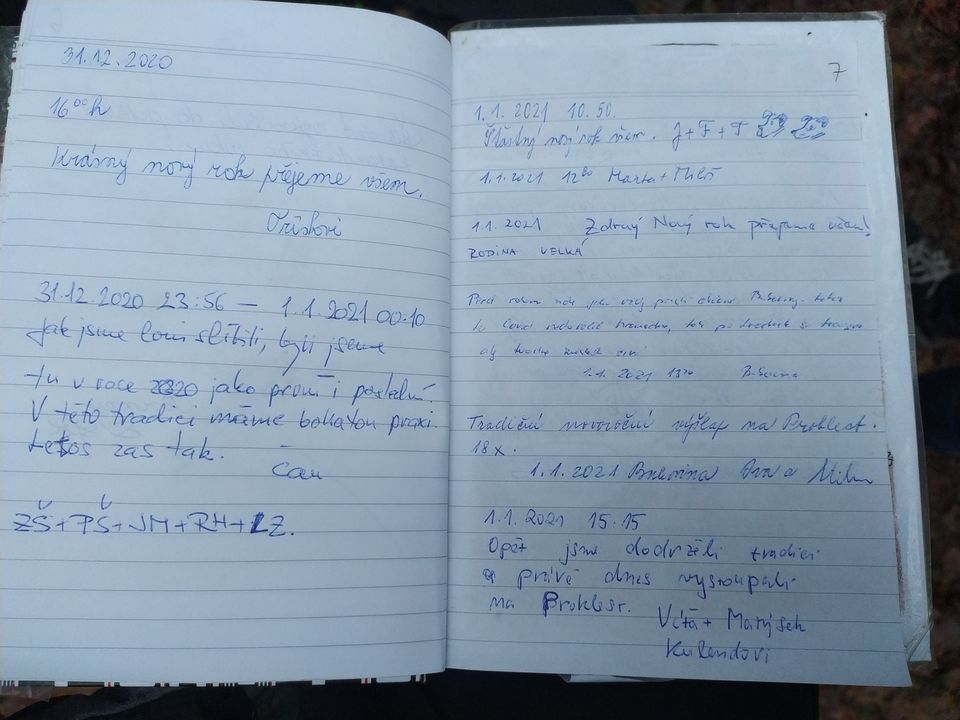 31.12.2020
16⁰⁰ h
Krásný nový rok přejeme všem.
Tříškovi
31.12.2020 23:56 – 1.1.2021 00:10
Jak jsme loni slíbili, byli jsme
tu v roce 2020 jako první i poslední.
V této tradici máme bohatou praxi.
Letos zas tak.
Čau
ZŠ+PŠ+JM+RH+LZ.
7
1.1.2021 10.50.
Šťastný nový rok všem. J+F+T
1.1.2021 12⁰⁰ Marta + Miloš
1.1.2021 Zdravý Nový rok přejeme všem!
RODINA VELKÁ
Před rokem
to Covid
aby
1.1.2021 13²⁰
Tradiční novoroční výšlap naProklest.
18x.
1.1.2021 Březina Iva a Milan
1.1.2021 15.15
Opět jsme dodrželi tradici
a právě dnes vystoupali
na Proklest.
Víťa + Matýsek
Kulendovi